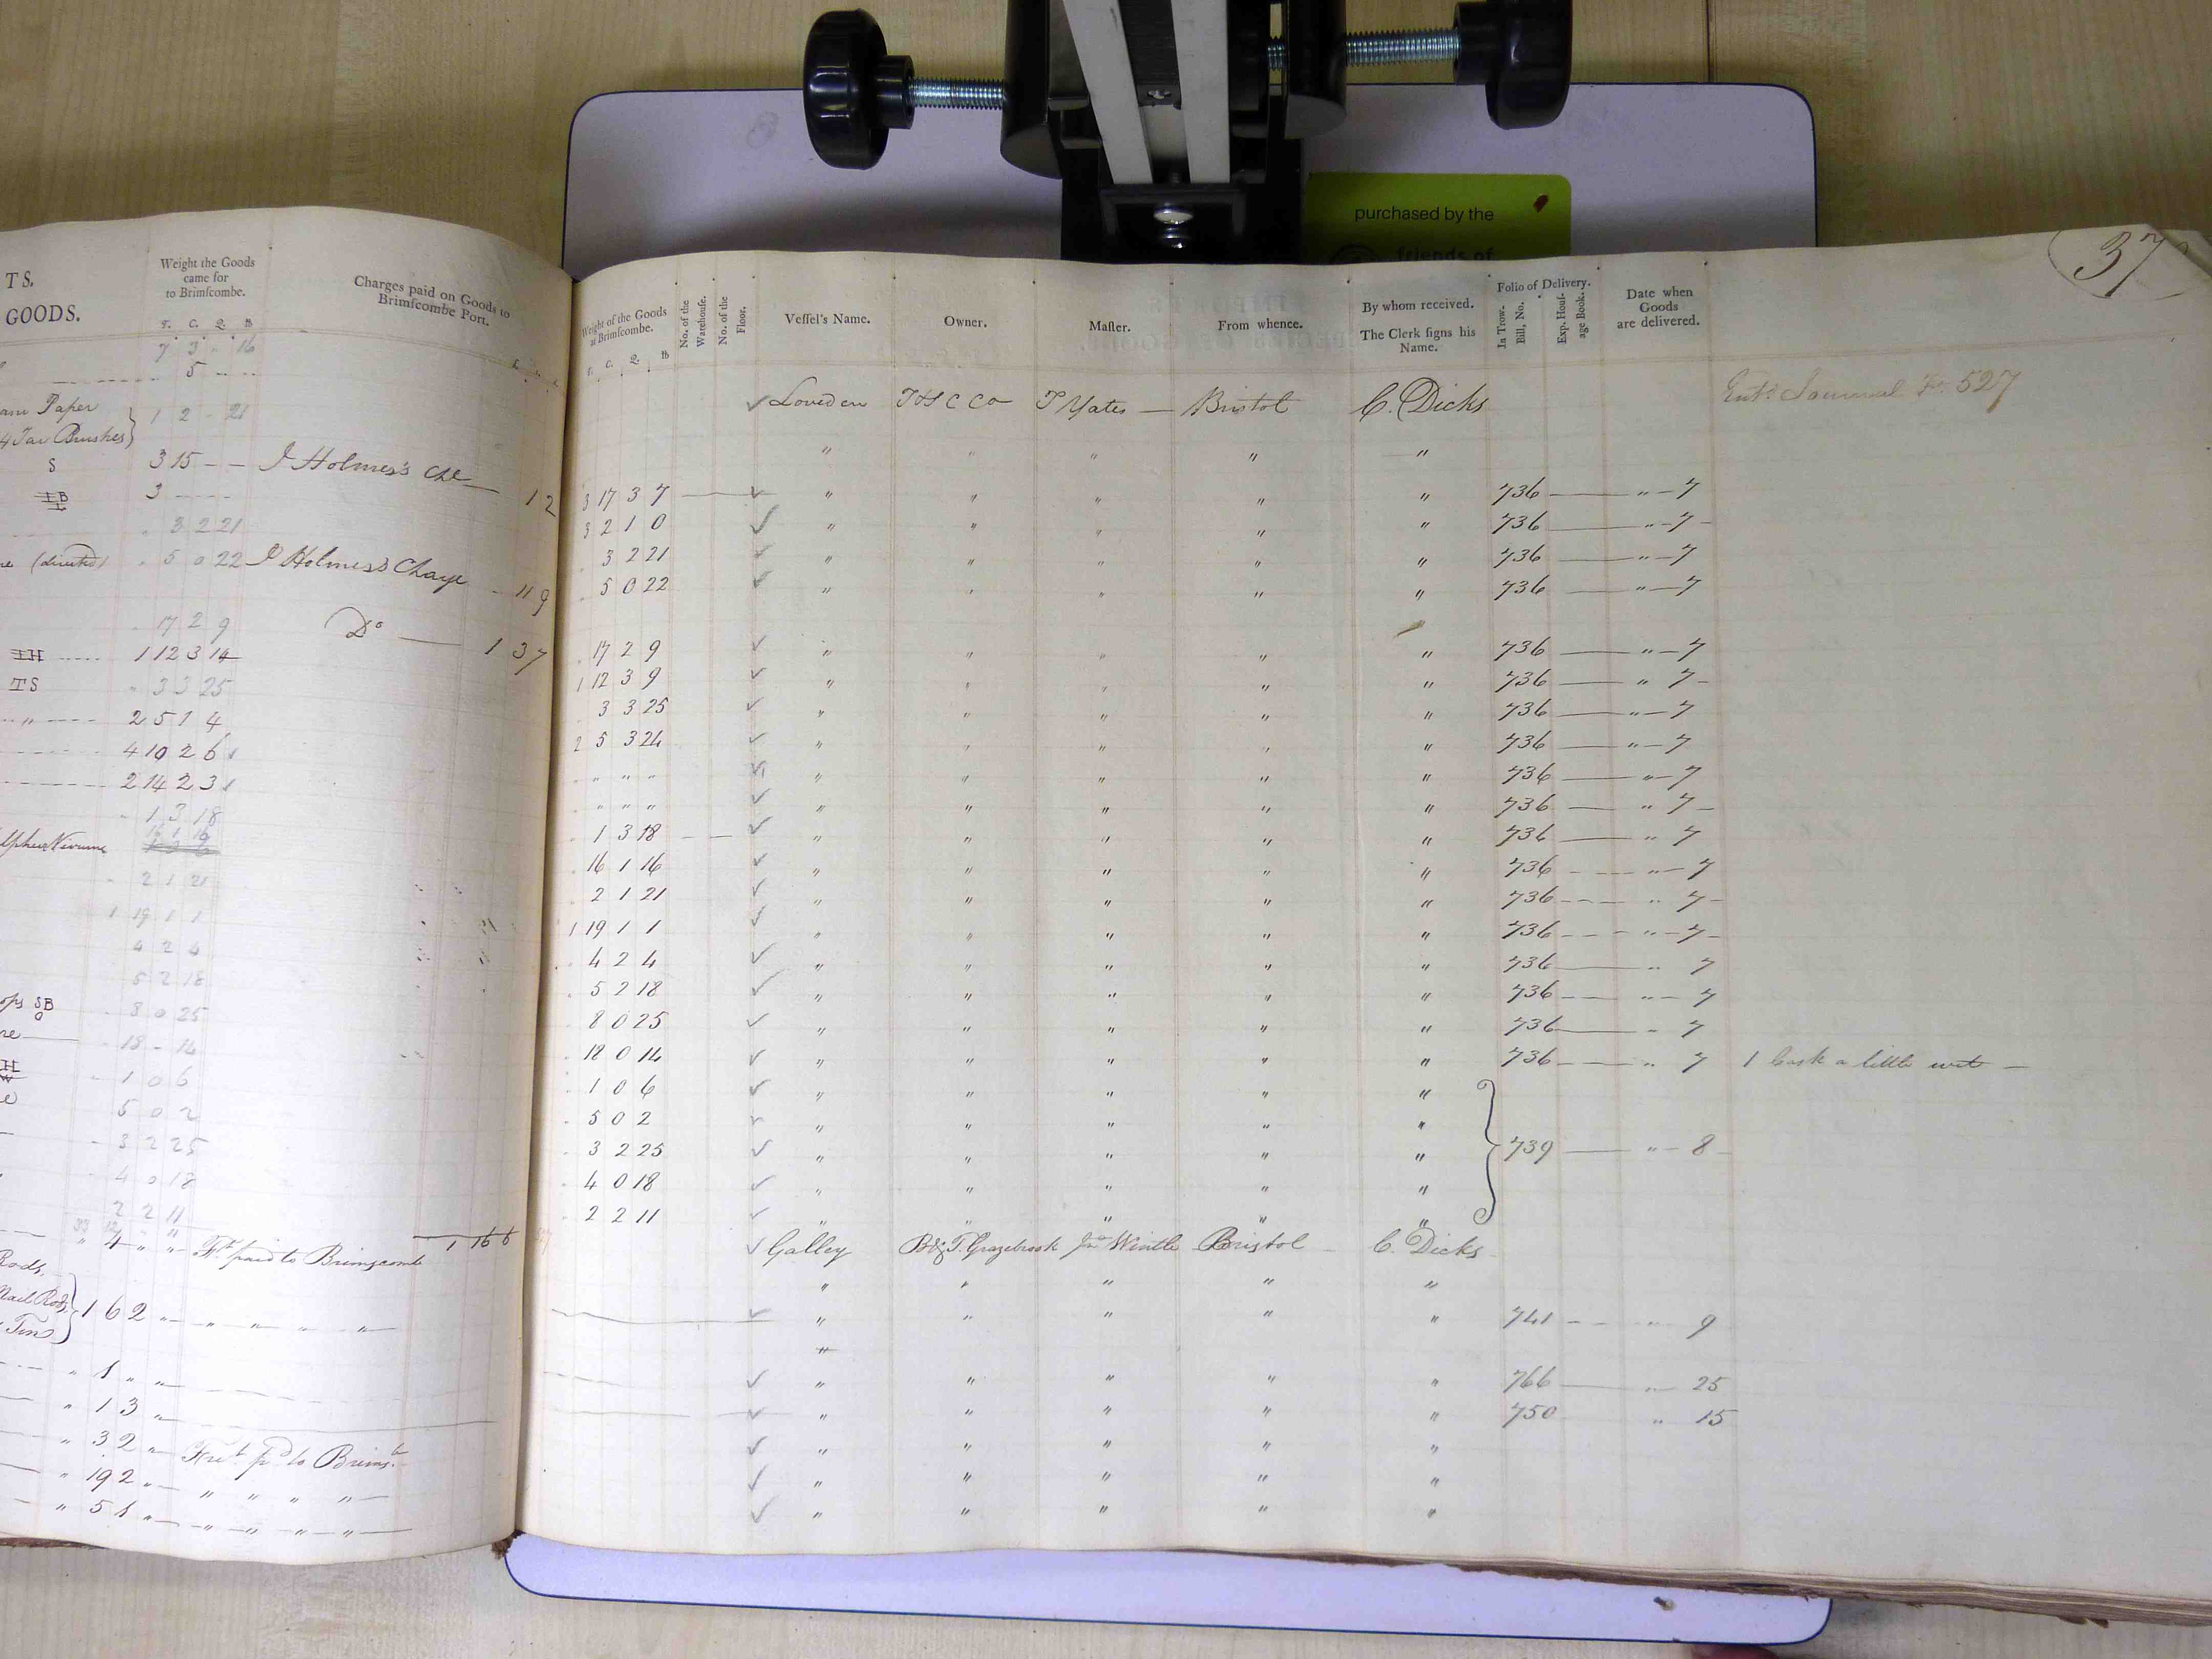 purchased by the
friends of
37
TS.
GOODS.
Weight the Goods
came for
to Brimſcombe.
T. C. Q. lb
Charges paid on Goods to
Brimſcombe Port.
7 3 - 16
5 - -
am Paper
4 Tar Brushes } 1 2 - 21
S 3 15 - - J Holmes's Che 1 2
3 - - -
" 3 2 21
(directed) " 5 0 22 J Holmes's Charge - 11 9
. 17 2 9 Do 1 3 7
IH 1 12 3 14
TS " 3 3 25
" 2 5 1 4
4 10 2 6
2 14 2 3
" 1 3 18
16 1 16
2 1 21
1 19 1 1
4 2 4
5 2 18
SB 8 0 25
18 - 14
1 0 6
5 0 2
3 2 25
4 0 18
2 2 11
" 4 " " Frt paid to Brimscomb 1 16 6
Rods,
Nail Rods
Tin } 1 6 2 " " " " "
" 1 " "
" 1 3 "
" 3 2 " Fret pd to Brims
" 19 2 " " " " "
" 5 1 " " " " "
Weight of the Goods
at Brimſcombe.
T. C. Q. lb
No. of the
Warehouſe.
No. of the
Floor.
Veſſel's Name.
Owner.
Maſter.
From whence.
By whom received.
The Clerk ſigns his
Name.
Folio of Delivery.
In Trow.
Bill, No.
Exp. Houſ-
age Book.
Date when
Goods
are delivered.
✓ Loveden T&SCCo T Yates — Bristol C. Dicks Entd Journal Fo 527
" " " " "
3 17 3 7 ✓ " " " " " 736 " 7
3 2 1 0 ✓ " " " " " 736 " 7
3 2 21 ✓ " " " " " 736 " 7
5 0 22 ✓ " " " " " 736 " 7
17 2 9 ✓ " " " " " 736 " 7
1 12 3 9 ✓ " " " " " 736 " 7
3 3 25 ✓ " " " " " 736 " 7
2 5 3 24 ✓ " " " " " 736 " 7
" " " ✓ " " " " " 736 " 7
" " " ✓ " " " " " 736 " 7
1 3 18 ✓ " " " " " 736 " 7
16 1 16 ✓ " " " " " 736 " 7
2 1 21 ✓ " " " " " 736 " 7
1 19 1 1 ✓ " " " " " 736 " 7
4 2 4 ✓ " " " " " 736 " 7
5 2 18 ✓ " " " " " 736 " 7
8 0 25 ✓ " " " " " 736 " 7
18 0 14 ✓ " " " " " 736 " 7 1 Cask a little wet —
1 0 6 ✓ " " " " "
5 0 2 ✓ " " " " "
3 2 25 ✓ " " " " " } 739 " 8
4 0 18 ✓ " " " " "
2 2 11 ✓ " " " " "
✓ Galley B&T. Grazebrook Jno Wintle Bristol C. Dicks
" " " " "
✓ " " " " " 741 " 9
"
✓ " " " " " 766 " 25
✓ " " " " " 750 " 15
✓ " " " " "
✓ " " " " "
✓ " " " " "